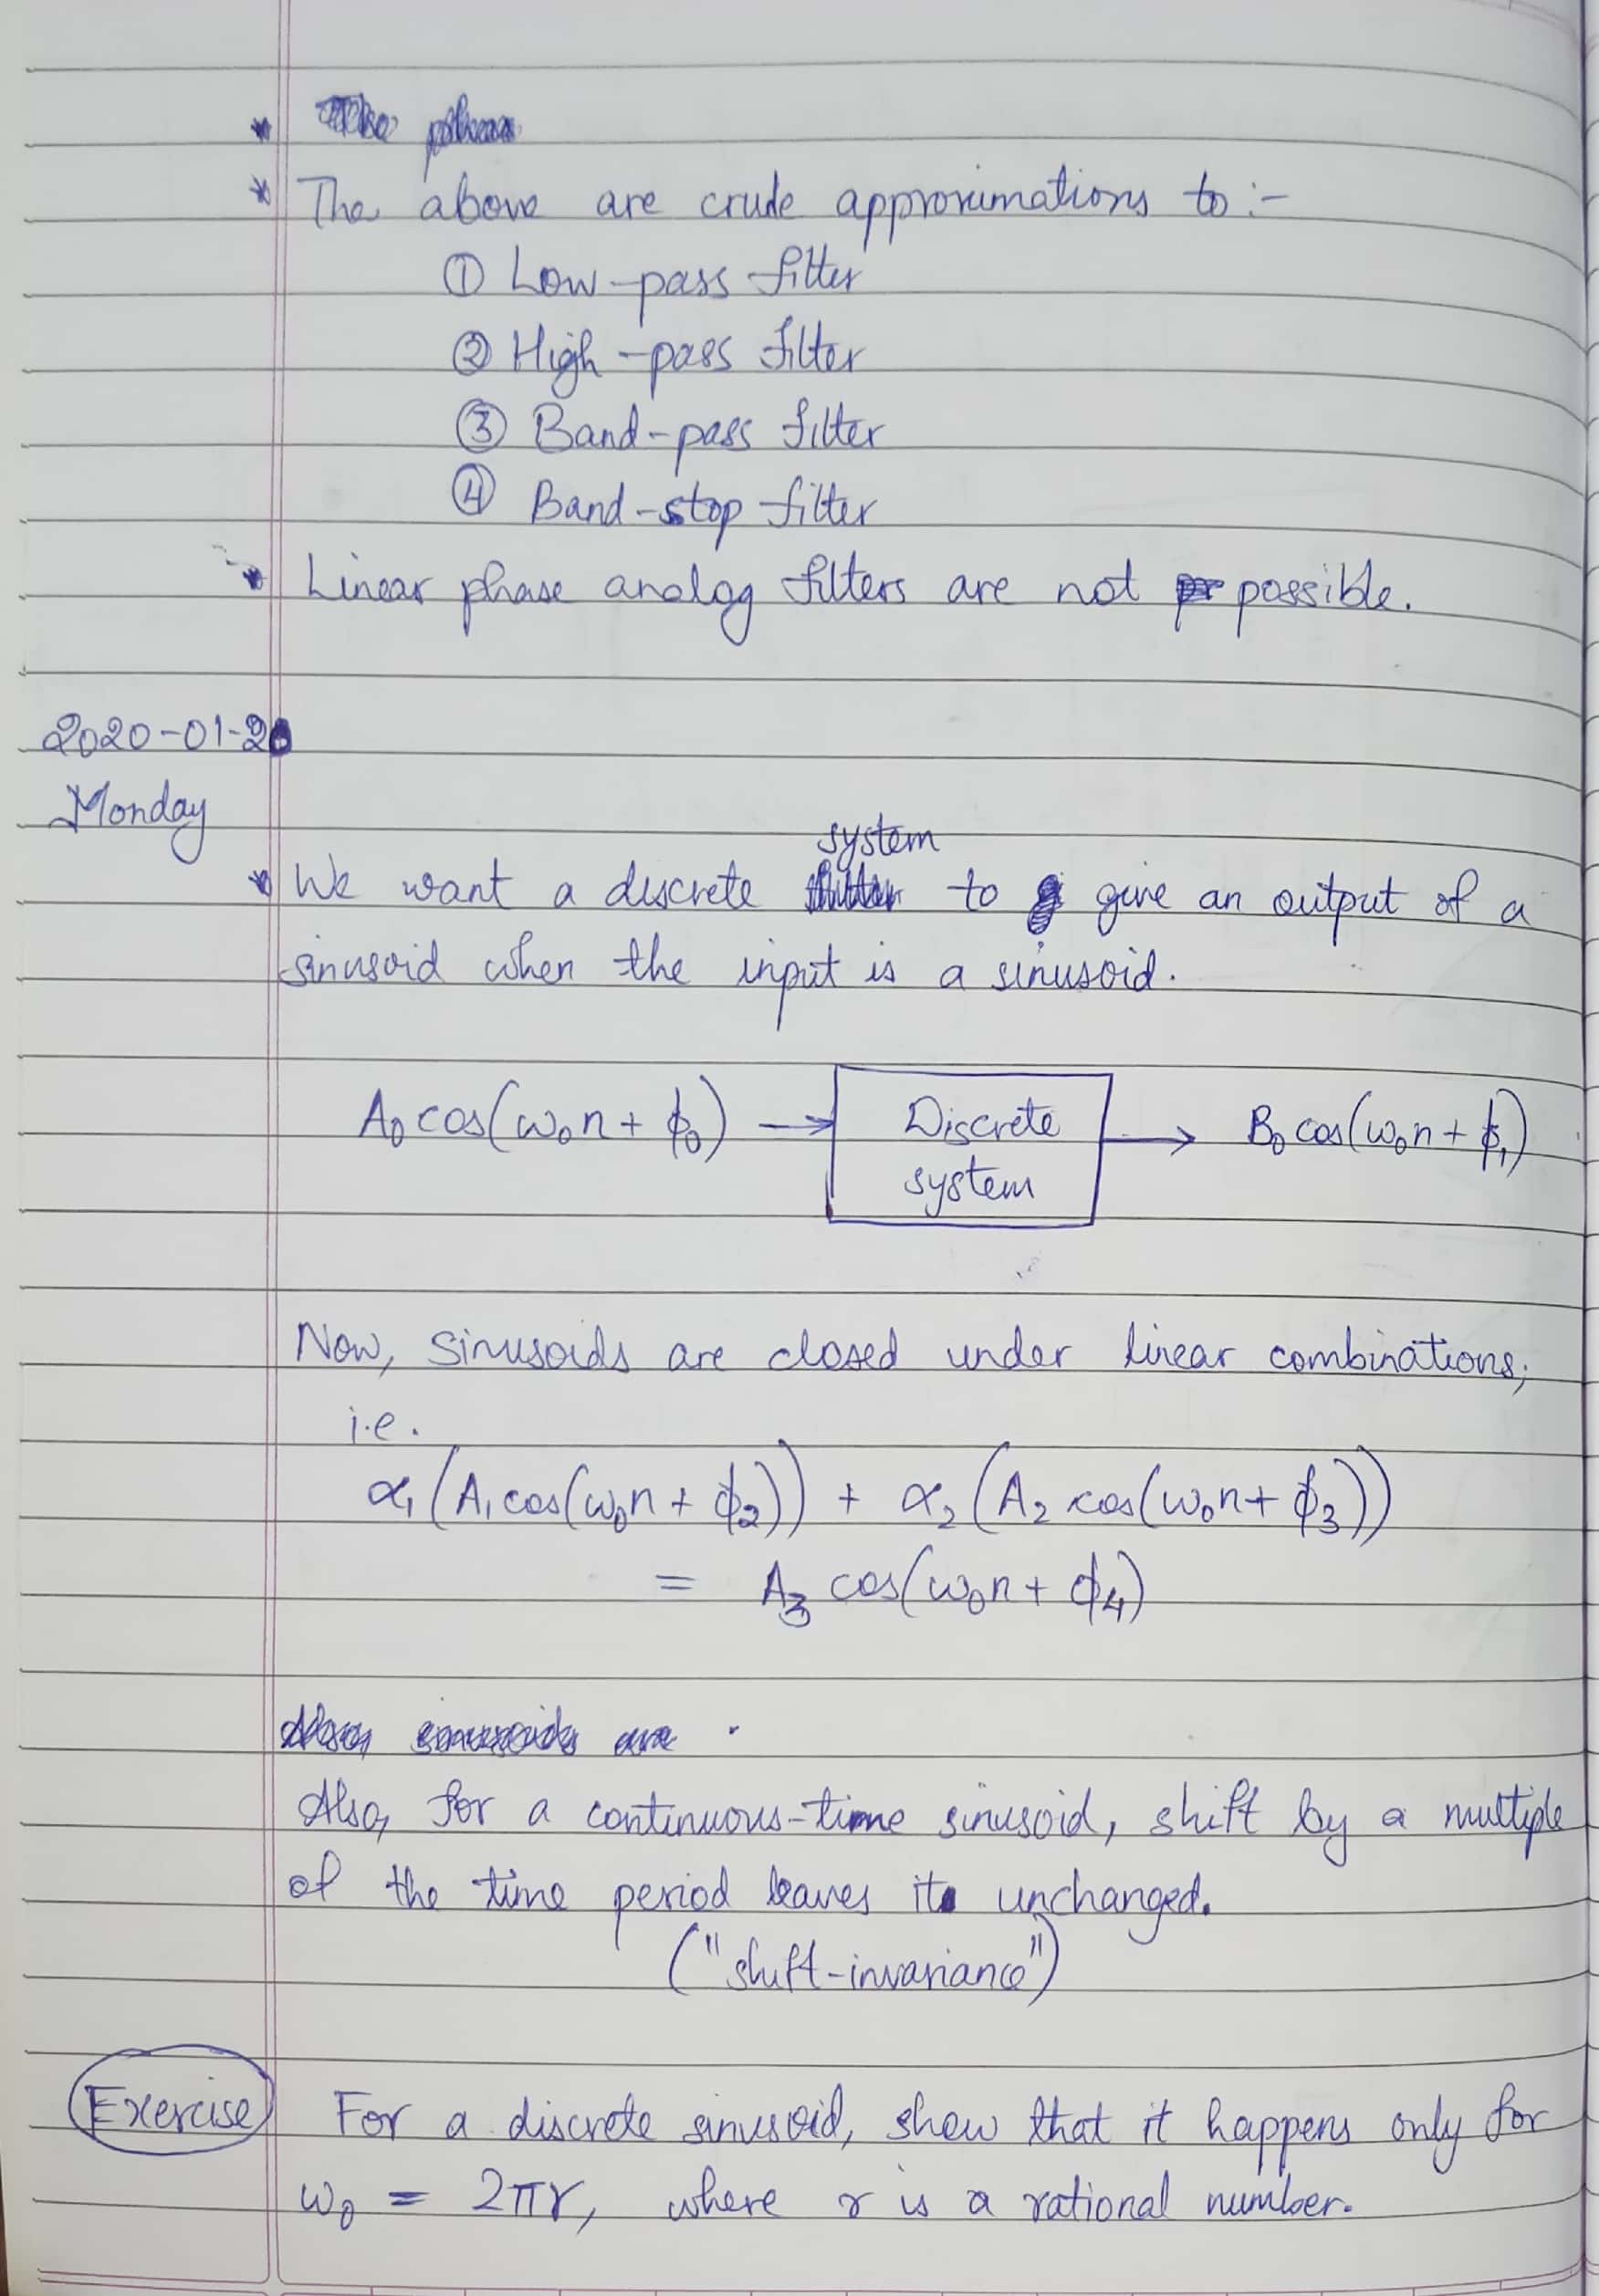 * The above are crude approximations to :-
① Low-pass filter
② High-pass filter
③ Band-pass filter
④ Band-stop filter
* Linear phase analog filters are not possible.
2020-01-20
Monday
system
* We want a discrete to give an output of a
sinusoid when the input is a sinusoid.
A₀ cos(ω₀n + ϕ₀) → Discrete system → B₀ cos(ω₀n + ϕ₁)
Now, sinusoids are closed under linear combinations,
i.e.
α₁(A₁cos(ω₀n + ϕ₂)) + α₂(A₂ cos(ω₀n + ϕ₃))
= A₃ cos(ω₀n + ϕ₄)
Also, for a continuous-time sinusoid, shift by a multiple
of the time period leaves it unchanged.
("shift-invariance")
Exercise For a discrete sinusoid, show that it happens only for
ω₀ = 2πr, where r is a rational number.